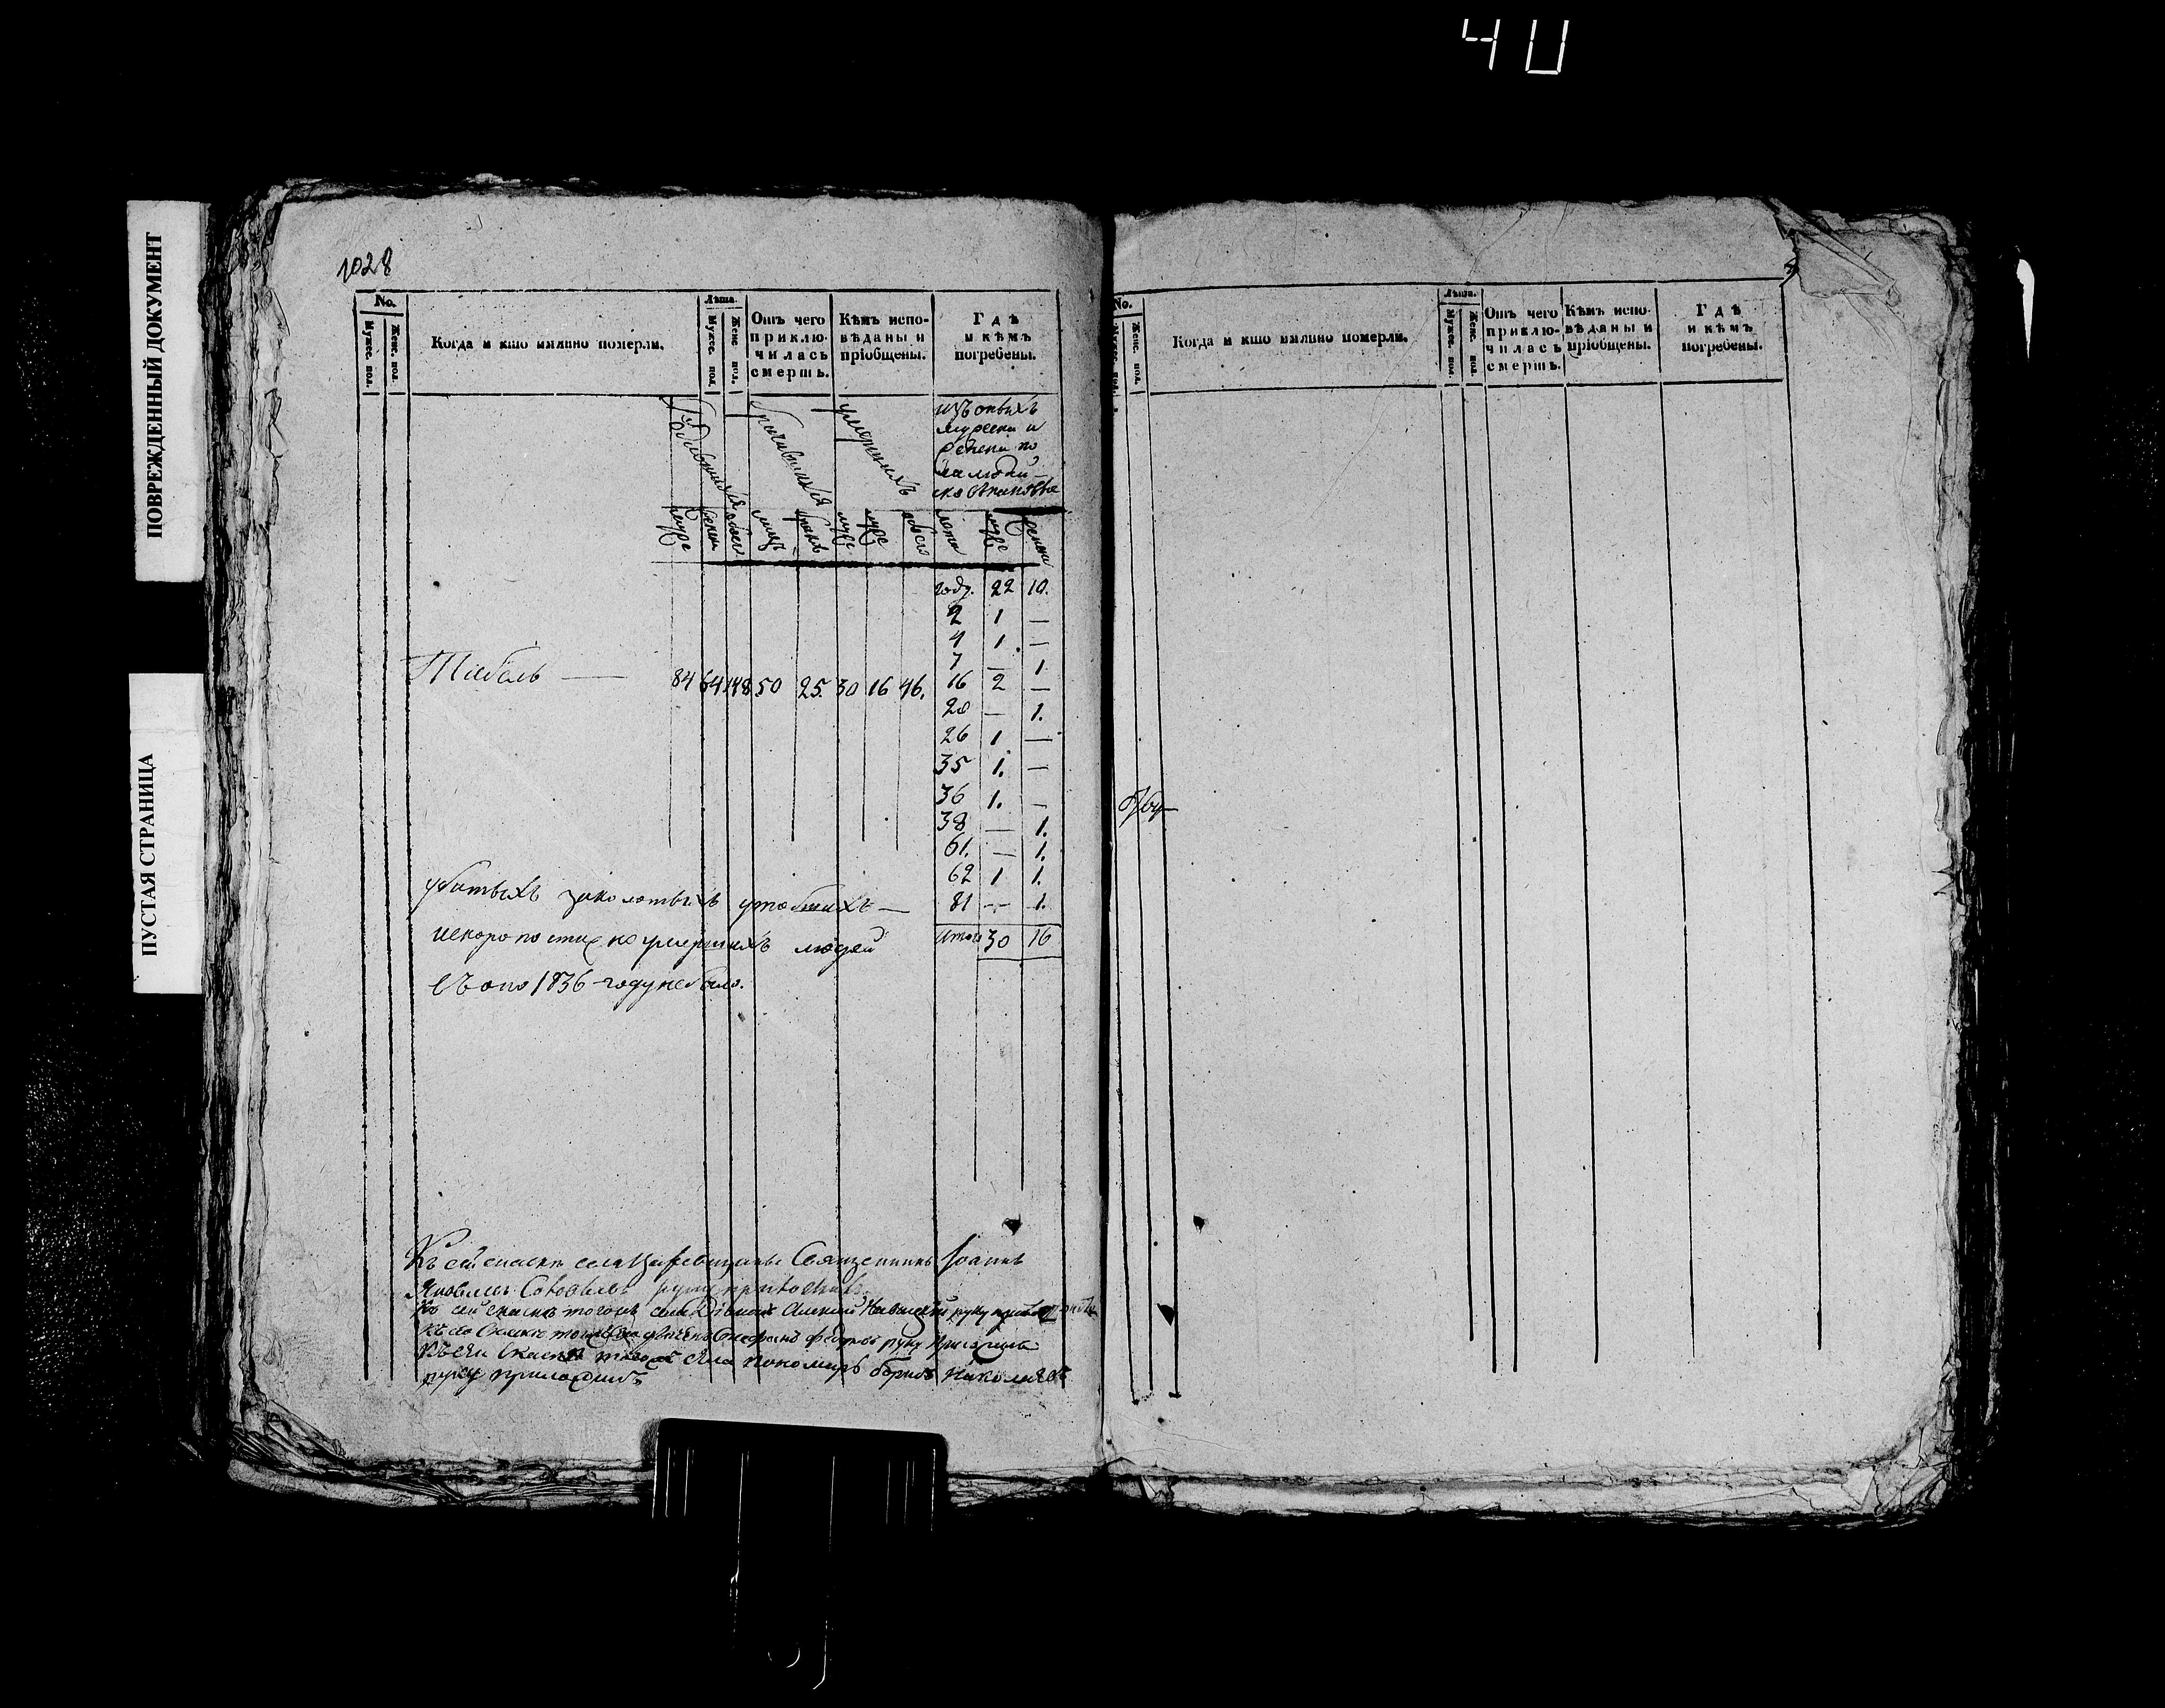 40
ПОВРЕЖДЕННЫЙ ДОКУМЕНТ
ПУСТАЯ СТРАНИЦА
1028
No.
Мужес. пол.
Женс. пол.
Когда и кто имянно померли.
Лѣта.
Мужес. пол.
Женс. пол.
Отъ чего приключилась смерть.
Кѣмъ исповѣданы и пріобщены.
Гдѣ и кѣмъ погребены.
родившихся
бракомъ
умершихъ
изъ оныхъ
мужеска и
женска по
муже
женс
обоего
лицъ
браковъ
муже
обоего
лета
муже
женска
году. 22 10.
2 1 —
4 1 —
7 — 1.
Табель — 84 64 148 50 25. 30 16 46. 16 2 —
20 — 1.
26 1 —
35 1. —
36 1. —
38 — 1.
61. — 1.
62 1 1.
81 — 1.
Итого 30 16
убитыхъ заколотыхъ утопшихъ —
и скоропостижно умершихъ людей
въ 1836 году не было.
Къ сей скаске села Священникъ Іоаннъ
Яковлевъ Соколовъ руку приложилъ
Ко сей скаске тогожъ села Діаконъ Алексей руку приложилъ
Къ сей скаске тогожъ села дьячекъ Стефанъ Федоровъ руку приложилъ
Къ сей скаске тогожъ села пономарь Борисъ Николаевъ
руку приложилъ
No.
Мужес. пол.
Женс. пол.
Когда и кто имянно померли.
Лѣта.
Мужес. пол.
Женс. пол.
Отъ чего приключилась смерть.
Кѣмъ исповѣданы и пріобщены.
Гдѣ и кѣмъ погребены.